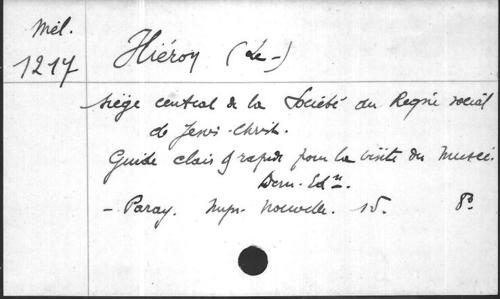 Mél.
1217
Hiéron (Le -)
siège central de la Société du Règne social
de Jésus-Christ.
Guide clair & rapide pour la visite du Musée.
Dern. Edon.
- Paray. Impr. Nouvelle. s.d. 8o